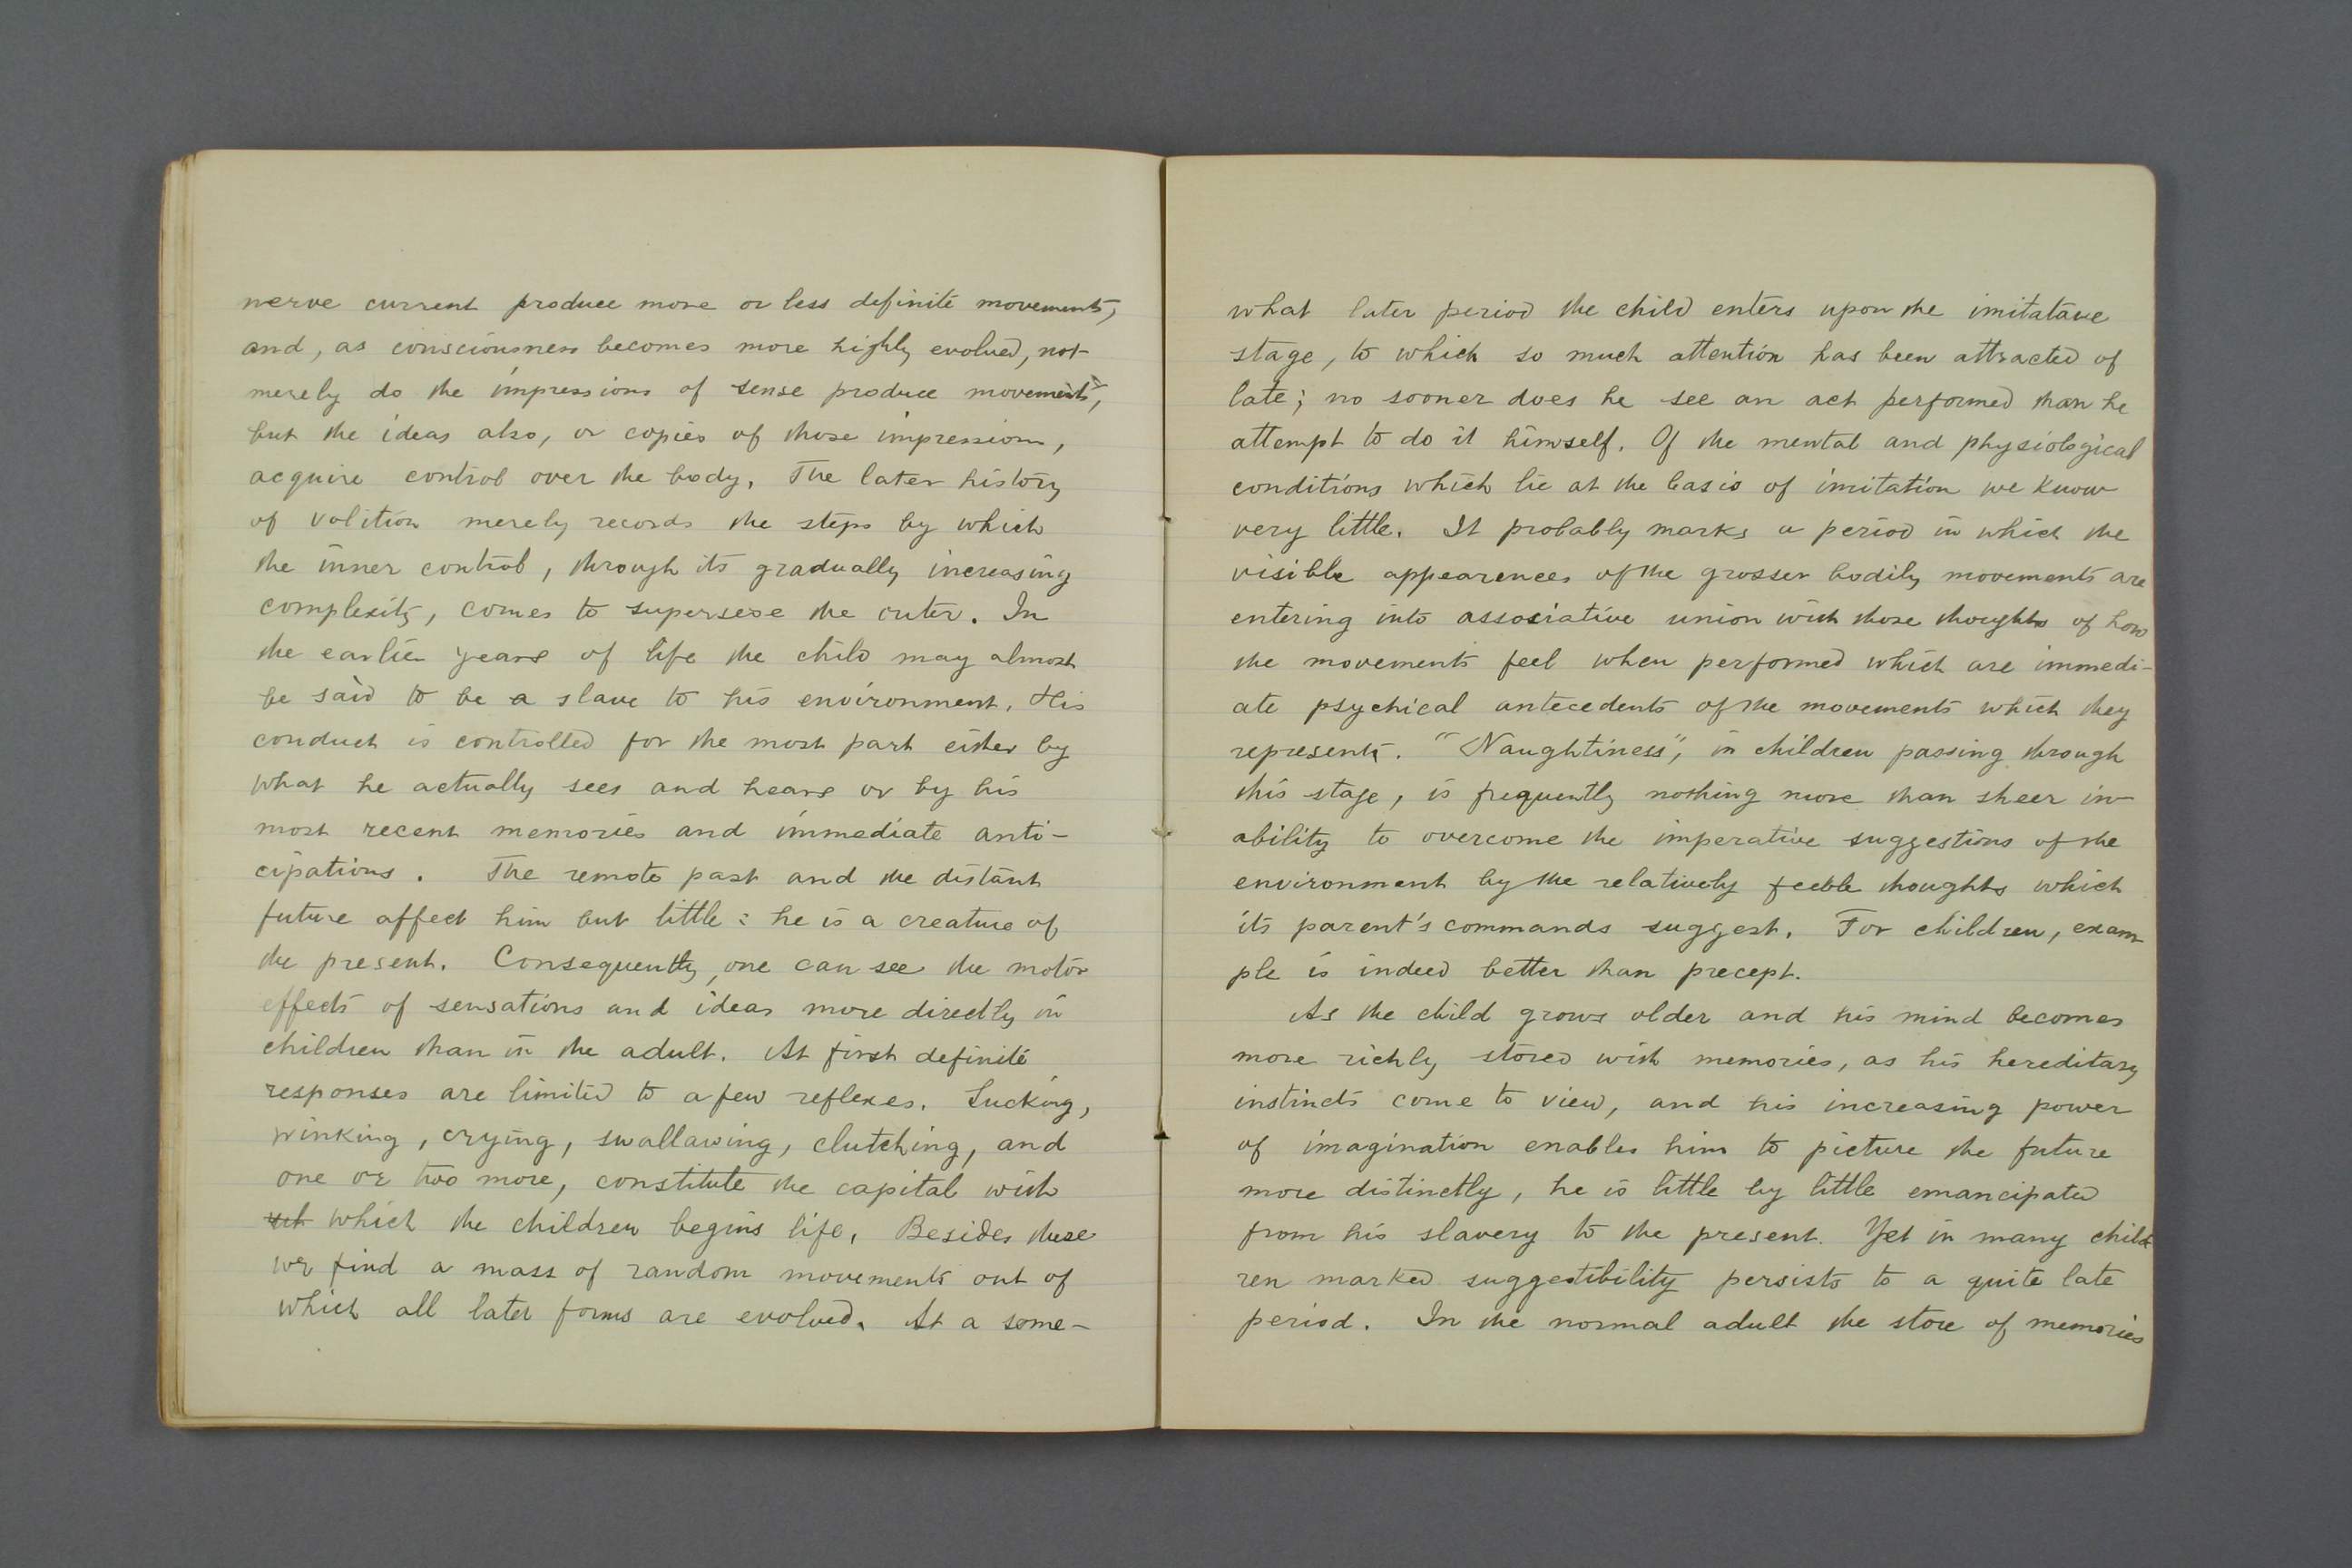 nerve current produce more or less definite movements,
and, as consciousness becomes more highly evolved, not
merely do the impressions of sense produce movements,
but the ideas also, or copies of those impressions,
acquire control over the body. The later history
of volition merely records the steps by which
the inner control, through its gradually increasing
complexity, comes to supersede the outer. In
the earlier years of life the child may almost
be said to be a slave to his environment. His
conduct is controlled for the most part either by
what he actually sees and hears or by his
most recent memories and immediate anti-
cipations. The remote past and the distant
future affect him but little: he is a creature of
the present. Consequently, one can see the motor
effects of sensations and ideas more directly in
children than in the adult. At first definite
responses are limited to a few reflexes. Sucking,
winking, crying, swallowing, clutching, and
one or two more, constitute the capital with
which the children begins life. Besides these
we find a mass of random movements out of
which all later forms are evolved. At a some-
what later period the child enters upon the imitatave
stage, to which so much attention has been attracted of
late; no sooner does he see an act performed than he
attempt to do it himself. Of the mental and physiological
conditions which lie at the basis of imitation we know
very little. It probably marks a period in which the
visible appearences of the grosser bodily movements are
entering into associative union with those thoughts of how
the movements feel when performed which are immedi-
ate psychical antecedents of the movements which they
represents. "Naughtiness", in children passing through
this stage, is frequently nothing more than sheer in-
ability to overcome the imperative suggestions of the
environment by the relatively feeble thoughts which
its parent's commands suggest. For children, exam-
ple is indeed better than precept.
As the child grows older and his mind becomes
more richly stored with memories, as his hereditary
instincts come to view, and his increasing power
of imagination enables him to picture the future
more distinctly, he is little by little emancipated
from his slavery to the present. Yet in many child-
ren marked suggestibility persists to a quite late
period. In the normal adult the store of memories